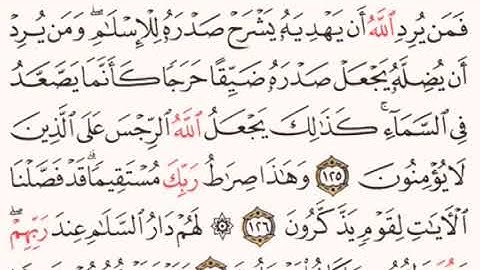 فَمَن يُرِدِ ٱللَّهُ أَن يَهْدِيَهُۥ يَشْرَحْ صَدْرَهُۥ لِلْإِسْلَٰمِ ۖ وَمَن يُرِدْ
أَن يُضِلَّهُۥ يَجْعَلْ صَدْرَهُۥ ضَيِّقًا حَرَجًا كَأَنَّمَا يَصَّعَّدُ
فِى ٱلسَّمَآءِ ۚ كَذَٰلِكَ يَجْعَلُ ٱللَّهُ ٱلرِّجْسَ عَلَى ٱلَّذِينَ
لَا يُؤْمِنُونَ ١٢٥ وَهَٰذَا صِرَٰطُ رَبِّكَ مُسْتَقِيمًا ۗ قَدْ فَصَّلْنَا
ٱلْءَايَٰتِ لِقَوْمٍ يَذَّكَّرُونَ ١٢٦ ۞ لَهُمْ دَارُ ٱلسَّلَٰمِ عِندَ رَبِّهِمْ ۖ